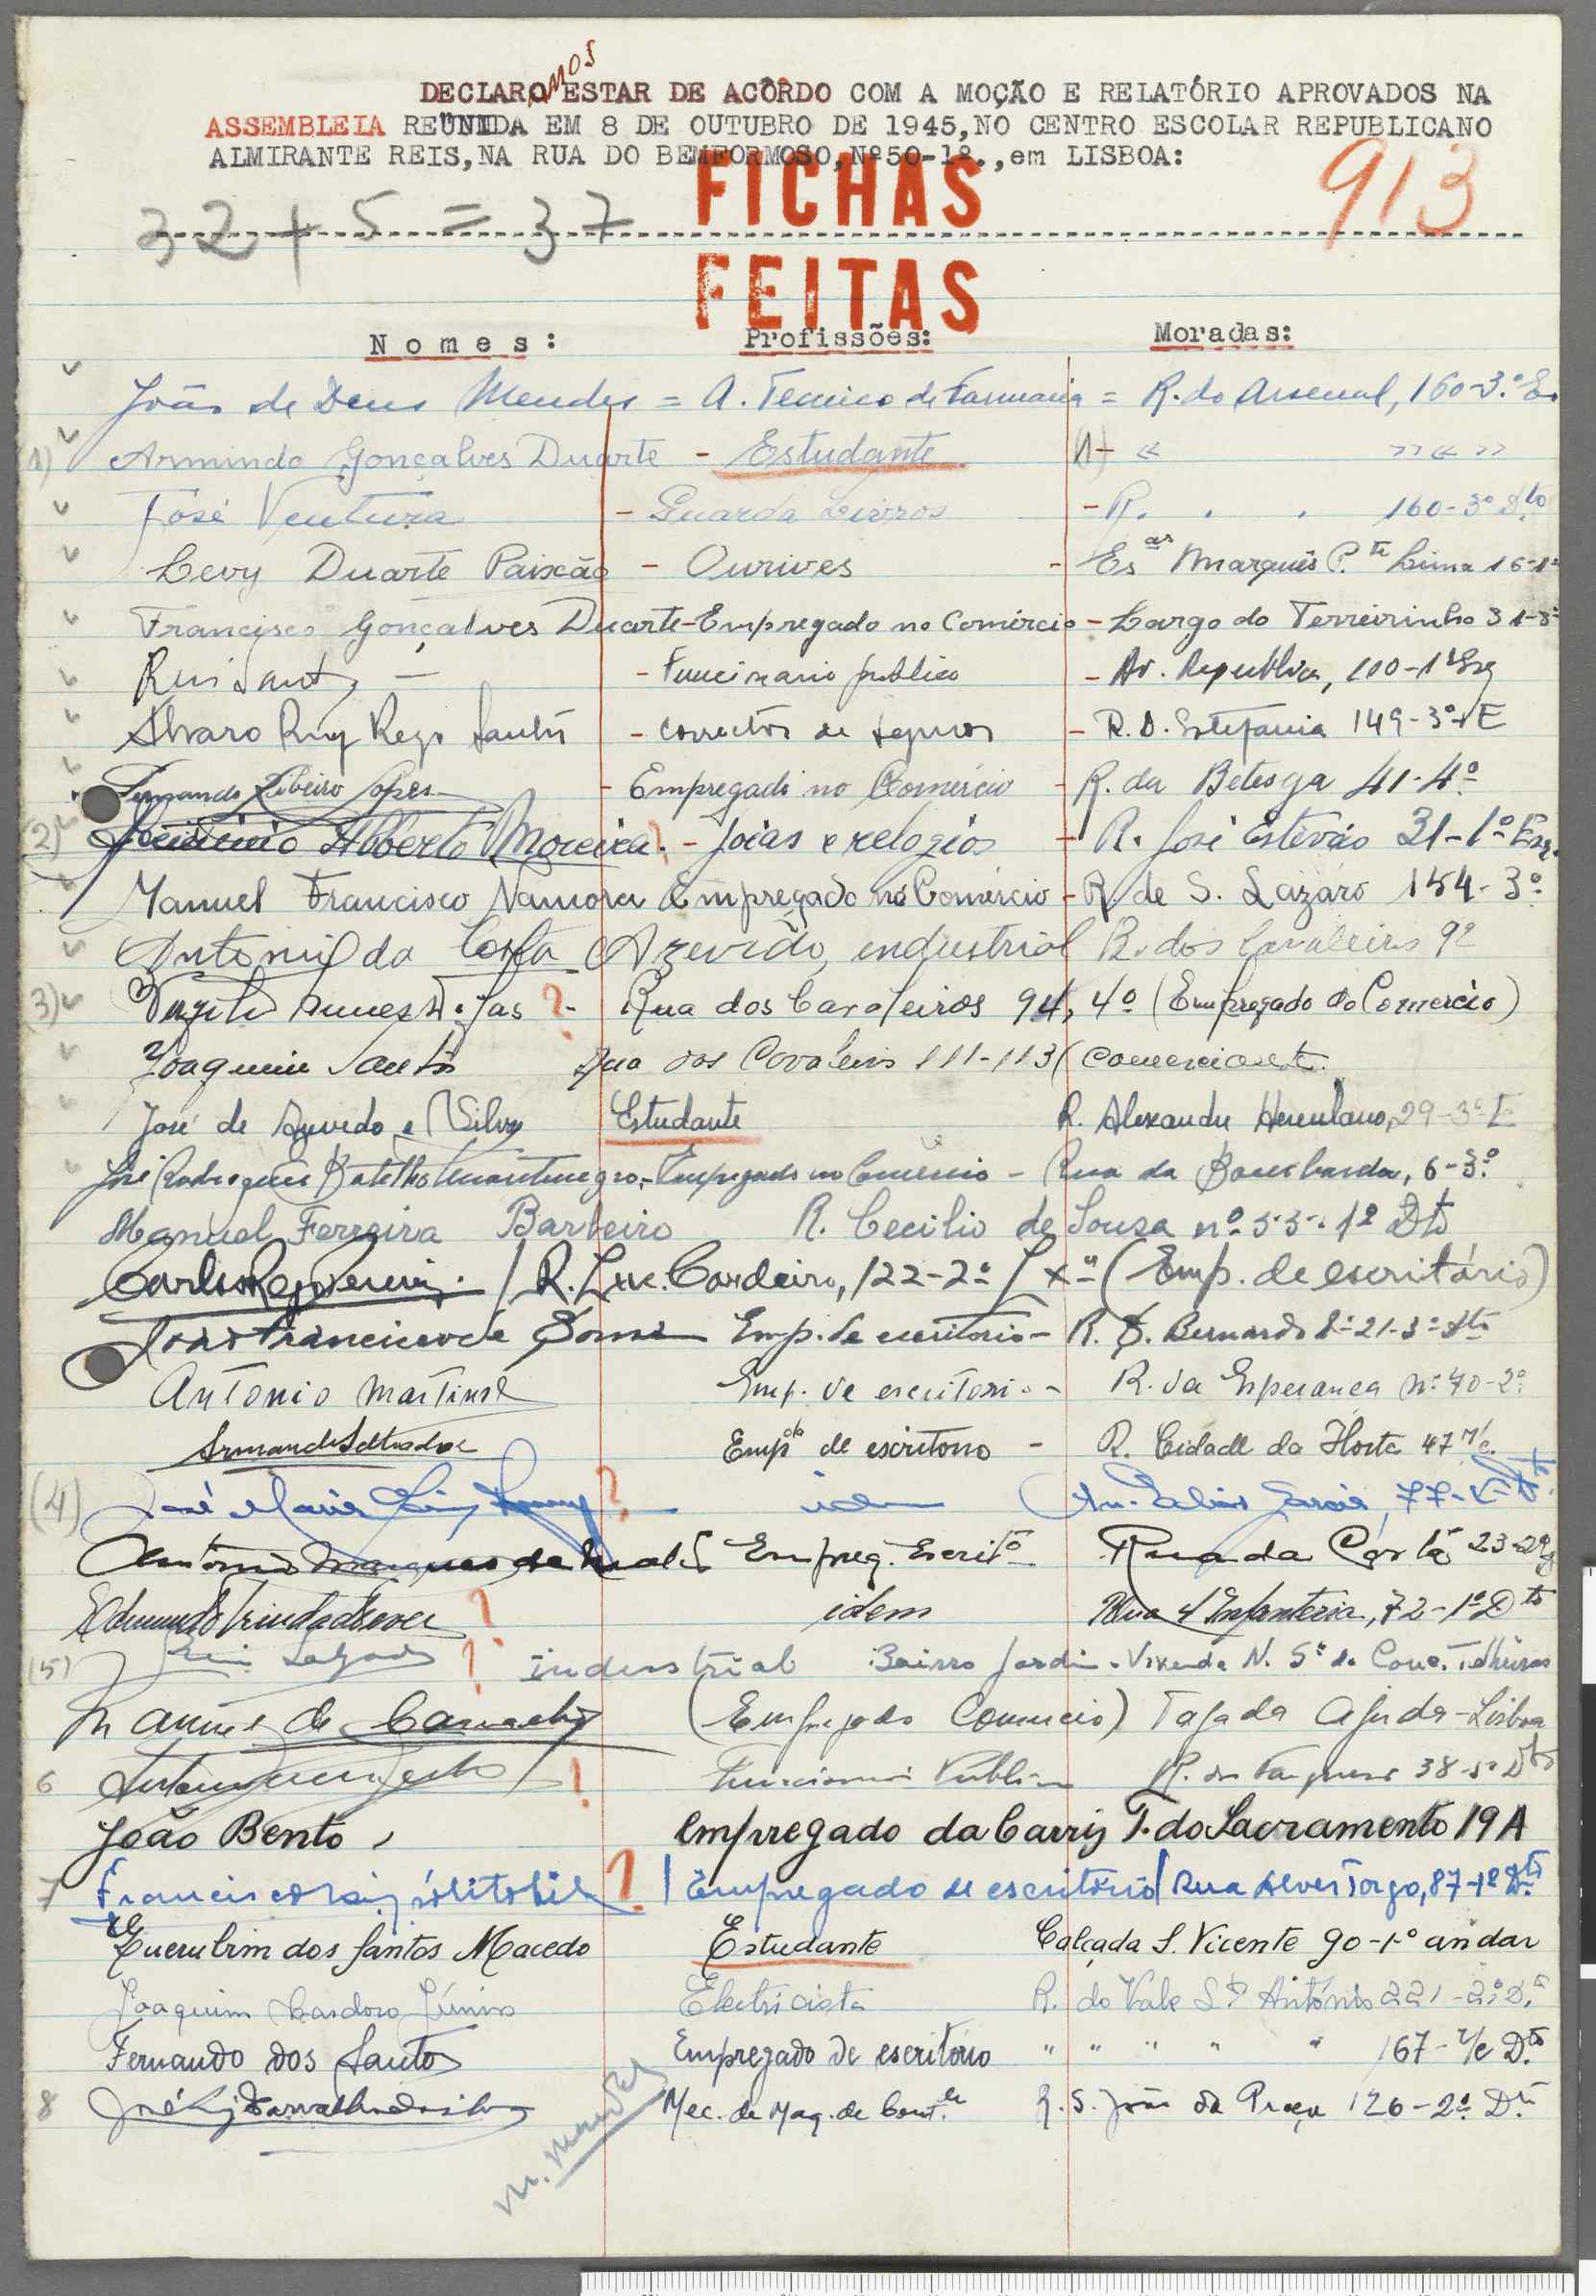 DECLARAMOS ESTAR DE ACÔRDO COM A MOÇÃO E RELATÓRIO APROVADOS NA
ASSEMBLEIA REÜNIDA EM 8 DE OUTUBRO DE 1945,NO CENTRO ESCOLAR REPUBLICANO
ALMIRANTE REIS,NA RUA DO BEMFORMOSO,Nº50-1º.,em LISBOA:
FICHAS 913
32 + 5 = 37
FEITAS
Nomes: Profissões: Moradas:
João de Deus Mendes = A. Tecnico de Farmacia = R. do Arsenal, 160-3.º E.
(1) Armindo Gonçalves Duarte - Estudante (1)- « »» « »
José Ventura - Guarda Livros - R. . . 160-3º Dto
Levy Duarte Paixão - Ourives - Esas Marquês P.te Lima 16-1º
Francisco Gonçalves Duarte - Empregado no Comércio - Largo do Terreirinho 31-3º
Rui Santos - Funcionario publico - Av. Republica, 100-1º Esq
Alvaro Ruy Rego Santos - Corrector de seguros - R. D. Estefania 149-3º E
Fernando Ribeiro Lopes - Empregado no Comércio - R. da Betesga 41-4º
(2) Alberto Moreira ? - Joias e relogios - R. José Estevão 31-1º Esq.
Manuel Francisco Namora Empregado no Comércio - R. de S. Lazaro 154-3º
Antonio da Costa Azevedo, industrial R. dos Cavaleiros 92
(3) Nunes ? - Rua dos Cavaleiros 94, 4º (Empregado do Comercio)
Joaquim Santos Rua dos Cavaleiros 111-113 (Comerciante
José de Azevedo e Silva Estudante R. Alexandre Herculano, 29-3º E
José Rodrigues Botelho Montenegro - Empregado no Comércio - Rua da Bombarda, 6-3º
Manuel Ferreira Barbeiro R. Cecilio de Sousa nº 55-1º Dto
Carlos / R. Luc. Cordeiro, 122-2º / Lxª (Emp. de escritório)
João Francisco de Emp. de escritorio - R. S. Bernardo 21-3º Dto
Antonio Martins Emp. de escritorio - R. da Esperança nº 40-2º
Armando Empdo de escritorio - R. Cidade da Horta 47 r/c.
(4) José Maria ? idem 77
Antonio Marques de Empreg. Escritº Rua da 23-2º
Edmundo Trindade ? idem Rua 4 Infanteria, 72-1º Dto
(5) Salgado ? industrial Bairro Jardim - Vivenda N. Sª da Conc. Telheiras
Manuel de (Empregado Comercio) Tapada Ajuda - Lisboa
6 ? Funcionario Publico R. 38-5º Dto
João Bento, empregado da Carris T. do Sacramento 19 A
7 Francisco ? / Empregado de escritório / Rua Alves Torgo, 87-1º Dto
Querubim dos Santos Macedo Estudante Calçada S. Vicente 90-1º andar
Joaquim Cardoso Júnior Electricista R. do Vale Sto António 221-2º D.to
Fernando dos Santos Empregado de escritório " " " " " 167-r/c D.to
8 José Carvalho da Silva Mec. de Maq. de Cont.de R. S. João da Praça 126-2º D.to